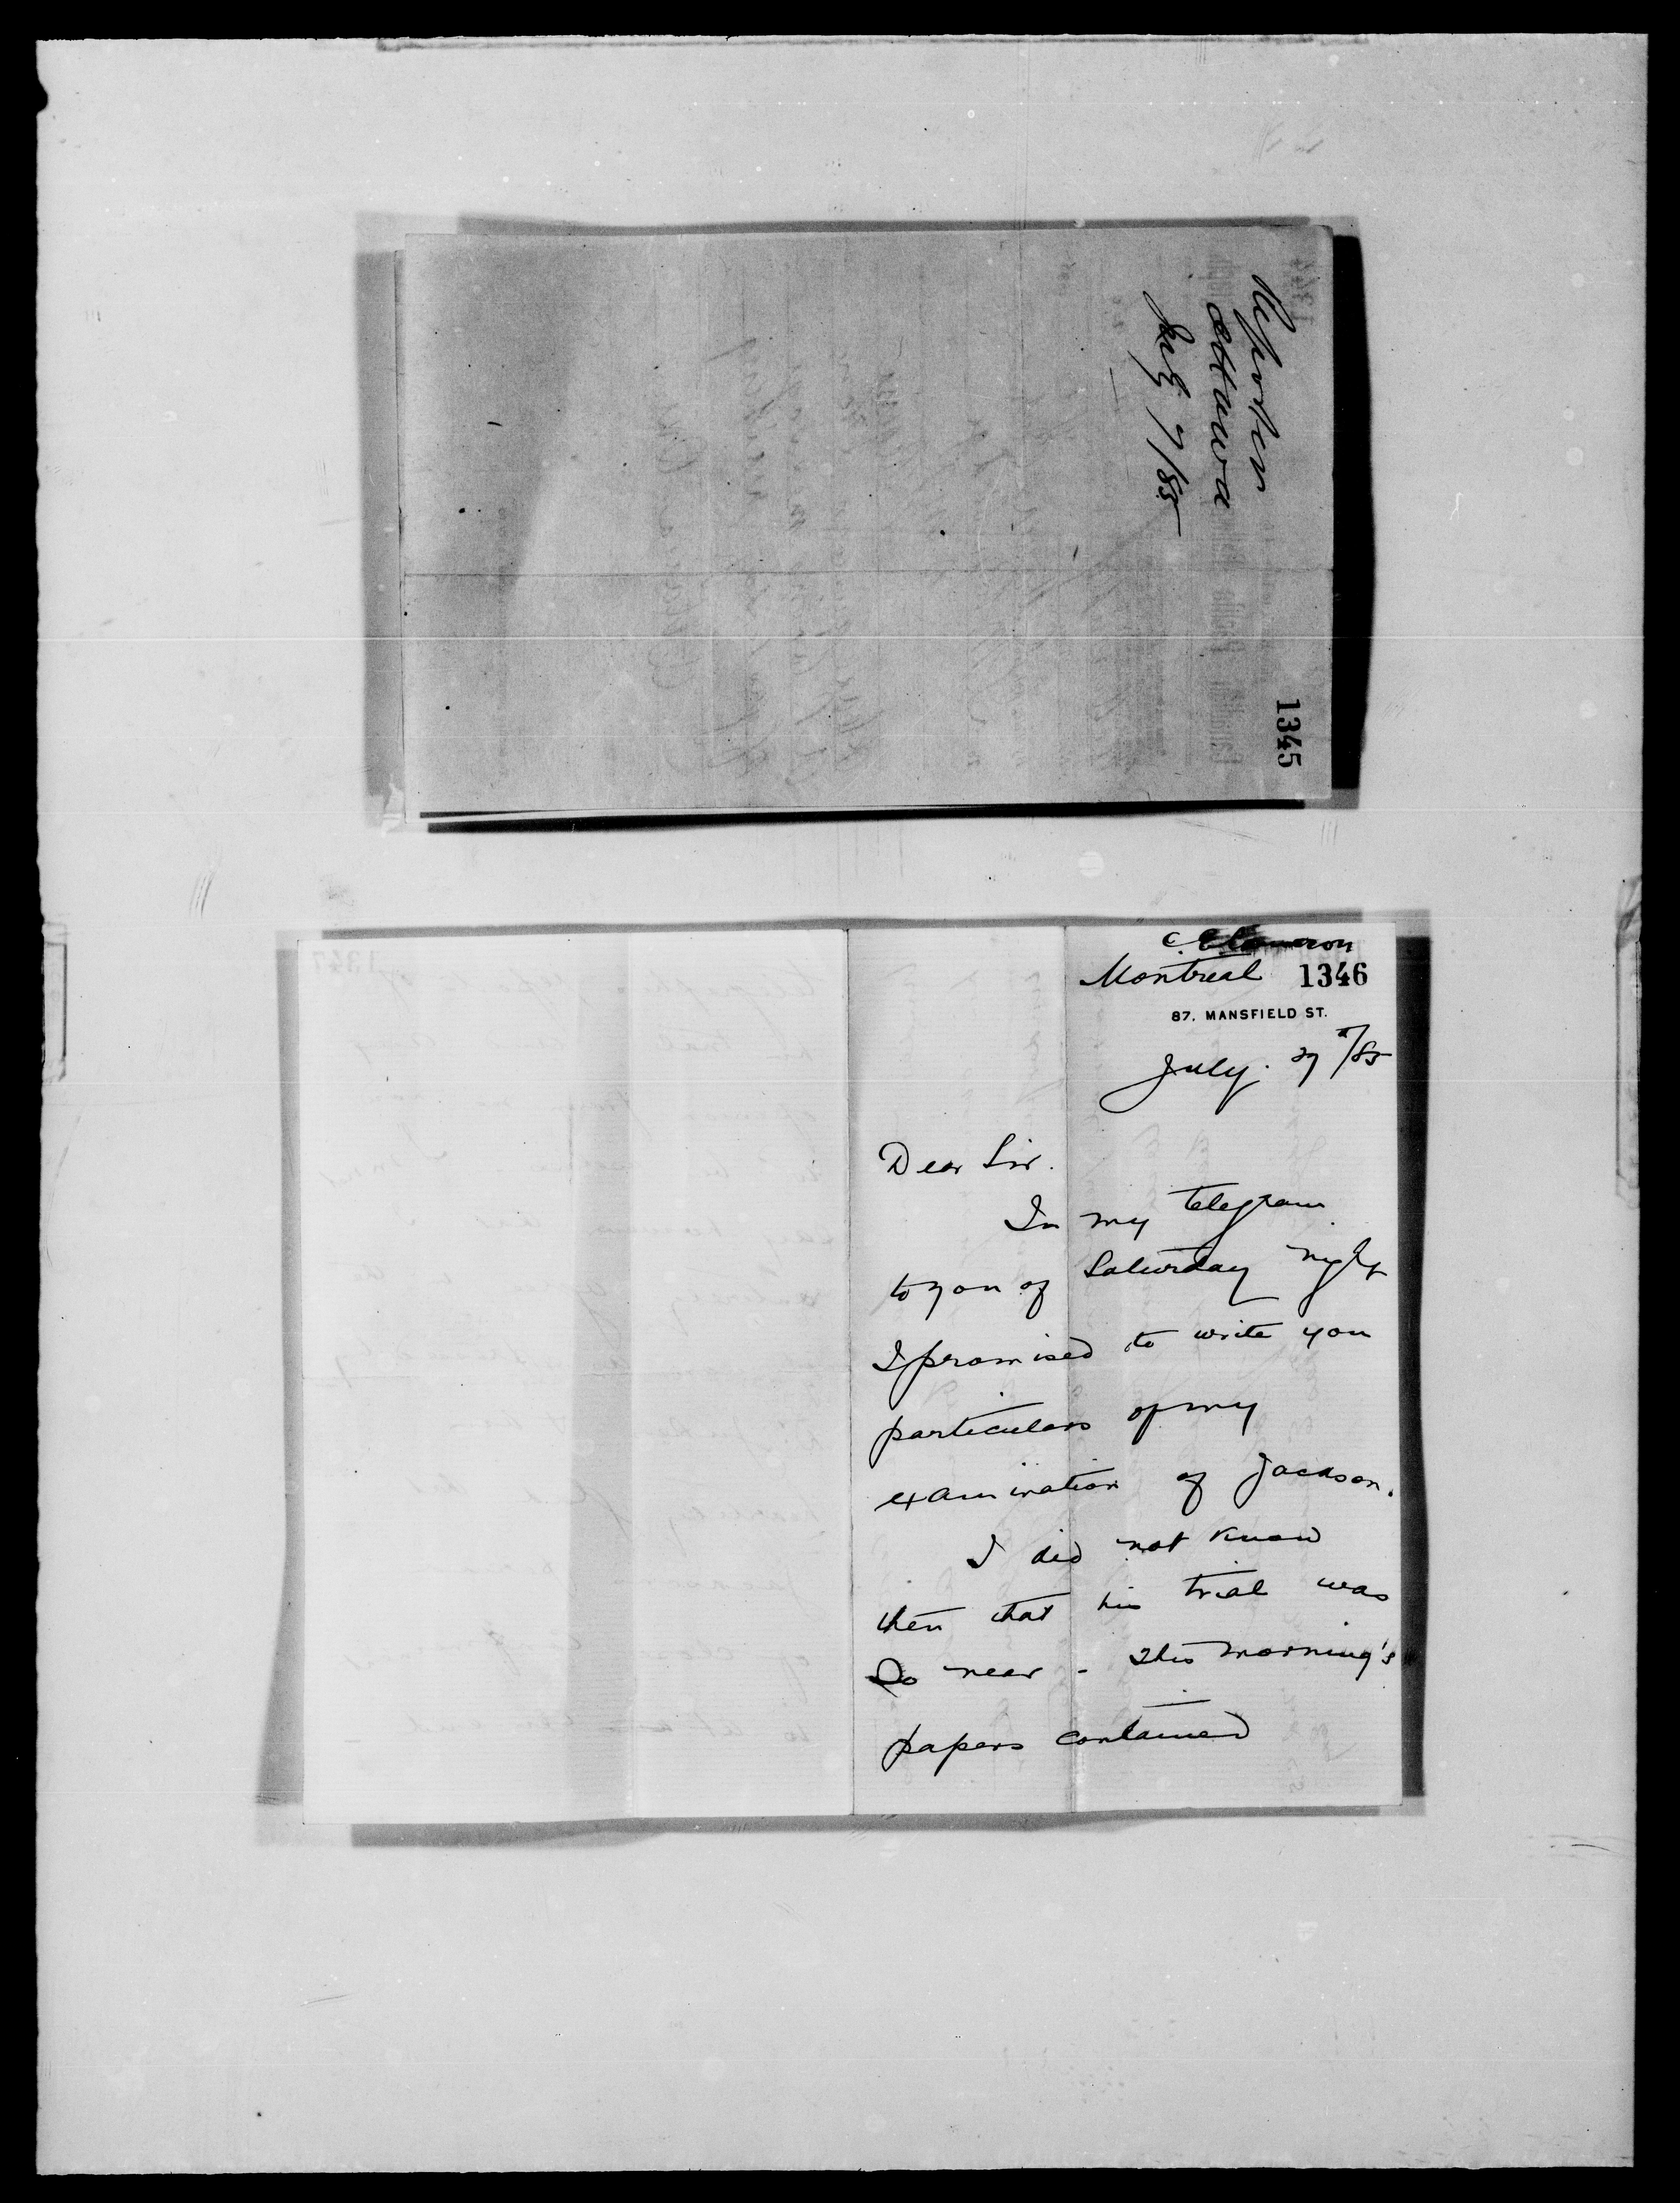 Reporter
Ottawa
July 7/85
1345
Montreal 1346
87. MANSFIELD ST.
July. 27/85
Dear Sir.
In my telegram
to you of Saturday night
I promised to write you
particulars of my
examination of Jackson.
I did not know
then that his trial was
so near - This morning's
papers contained